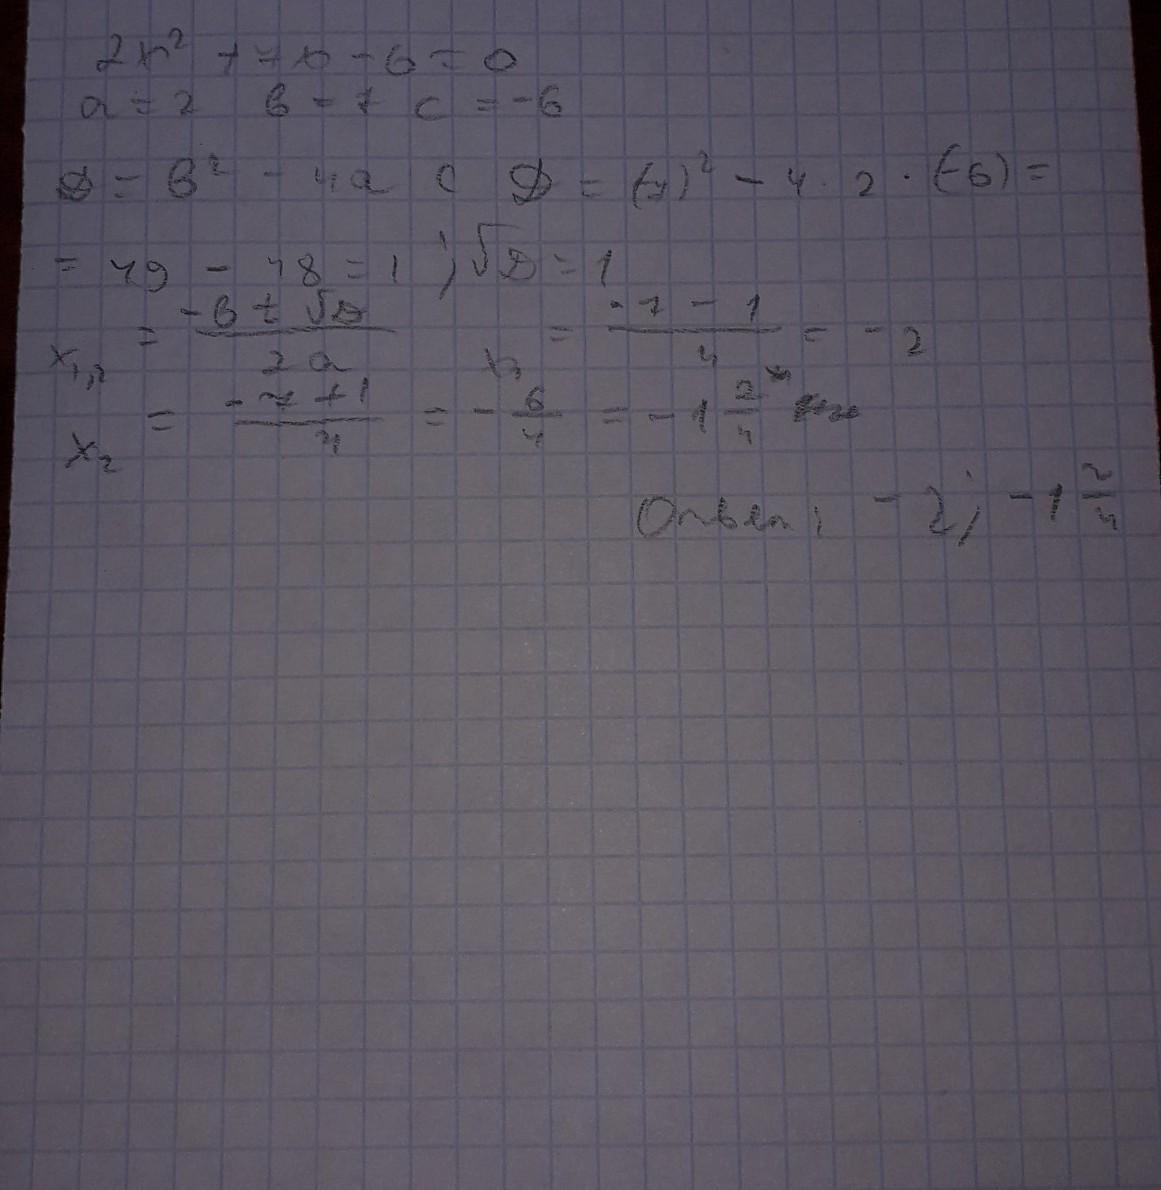 2x² + 7x - 6 = 0
a = 2 в = 7 c = -6
D = в² - 4a c D = (7)² - 4 · 2 · (-6) =
= 49 - 48 = 1 ; √D = 1
x₁,₂ = (-в ± √D) / 2a x₁ = (-7 - 1) / 4 = -2
x₂ = (-7 + 1) / 4 = - 6/4 = -1 2/4
Ответ: -2; -1 2/4